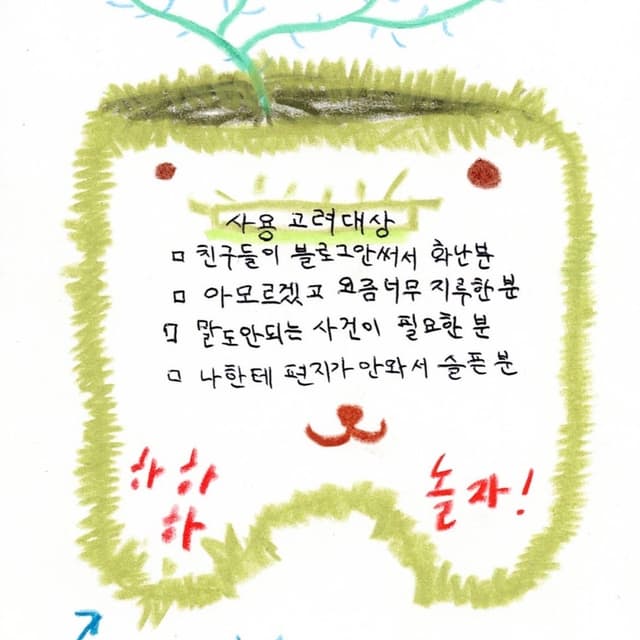 사용 고려대상
□ 친구들이 블로그안써서 화난분
□ 아모르겠고 요즘너무 지루한분
□ 말도안되는 사건이 필요한분
□ 나한테 편지가 안와서 슬픈분
하하
하
놀자!